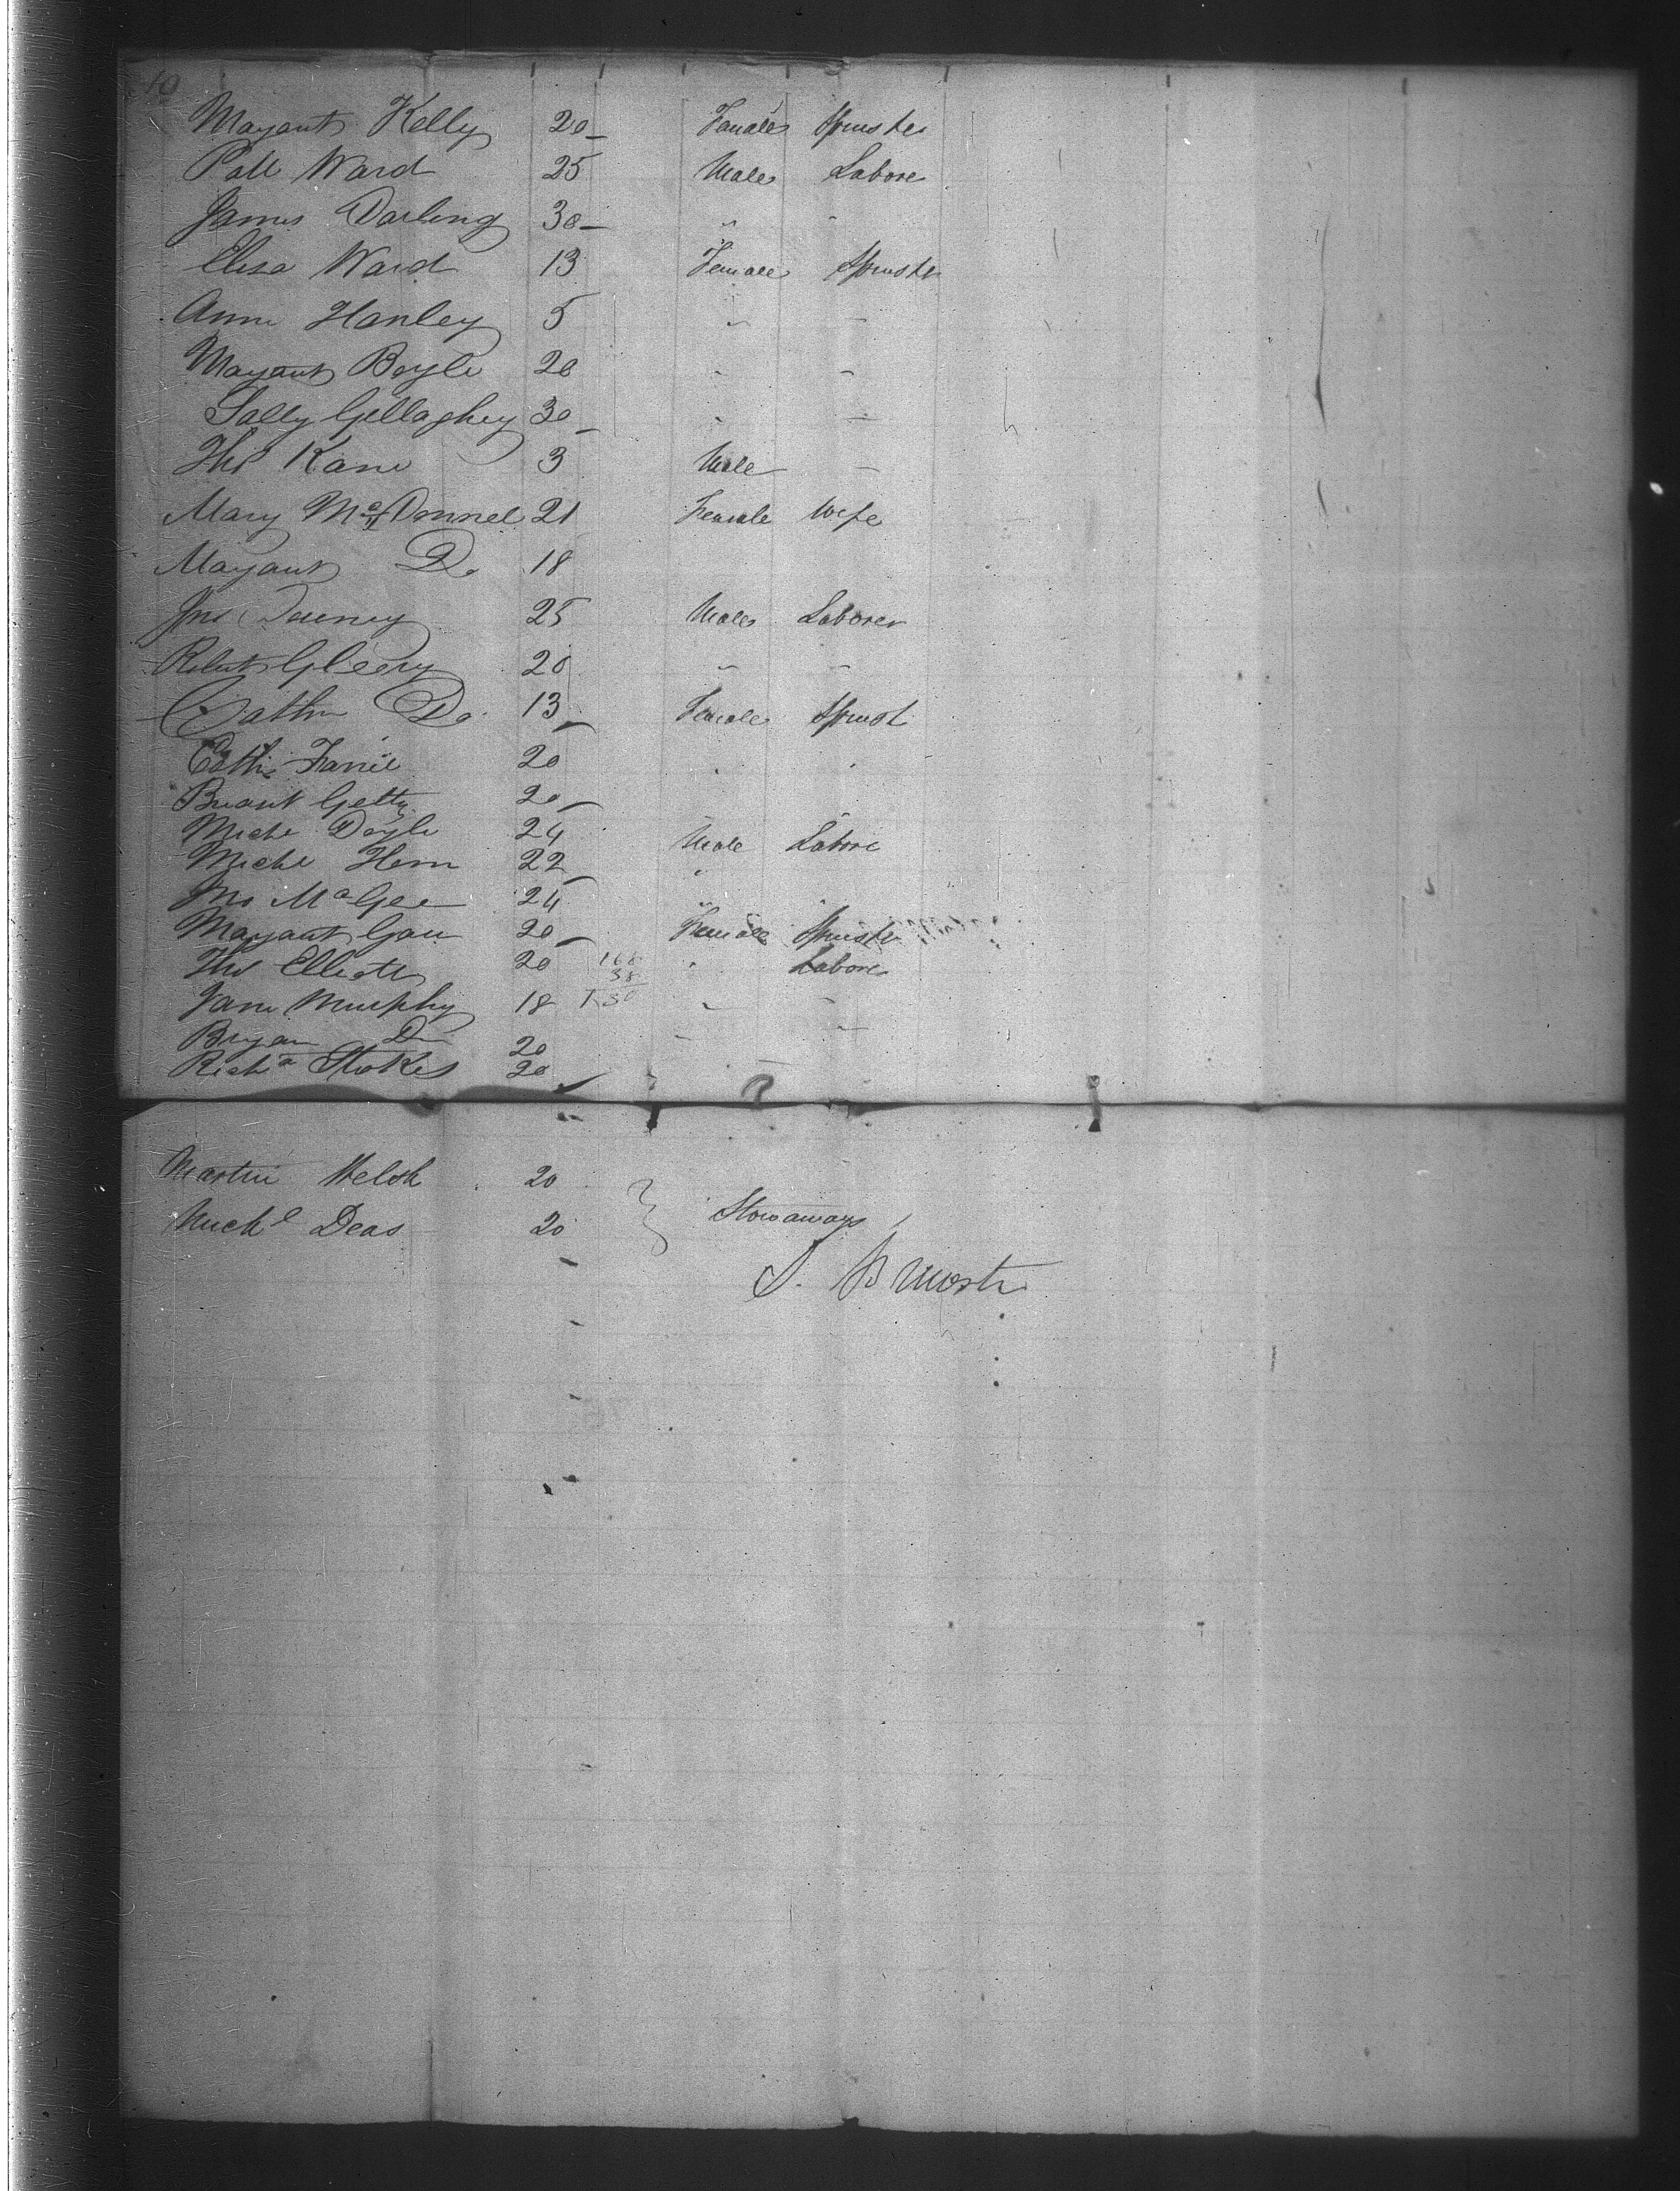 10
Margaret Kelly 20 Female Spinster
Patk Ward 25 Male Labore
James Darling 30 " "
Eliza Ward 13 Female Spinster
Ann Hanley 5 " "
Margaret Boyle 20 " "
Sally Gellaghey 30 " "
Thos Kane 3 Male "
Mary McDonnel 21 Female Wife
Margaret Do 18
Jno Downey 25 Male Laborer
Robert Gleery 20 " "
Cathn Do 13 Female Spinst
Cathe 20
Getty 20
Michl Doyle 24 Male Labore
Michl Hern 22 "
Jno McGee 24 " "
Margaret Gau 20 Female Spinster
Thos Elliott 20 168 " Labore
38
Jane Murphy 18 130 " "
Bryan Do 20 " "
Richd Stokes 20 " "
Martin Welsh 20
Stowaways
Michl Deas 20